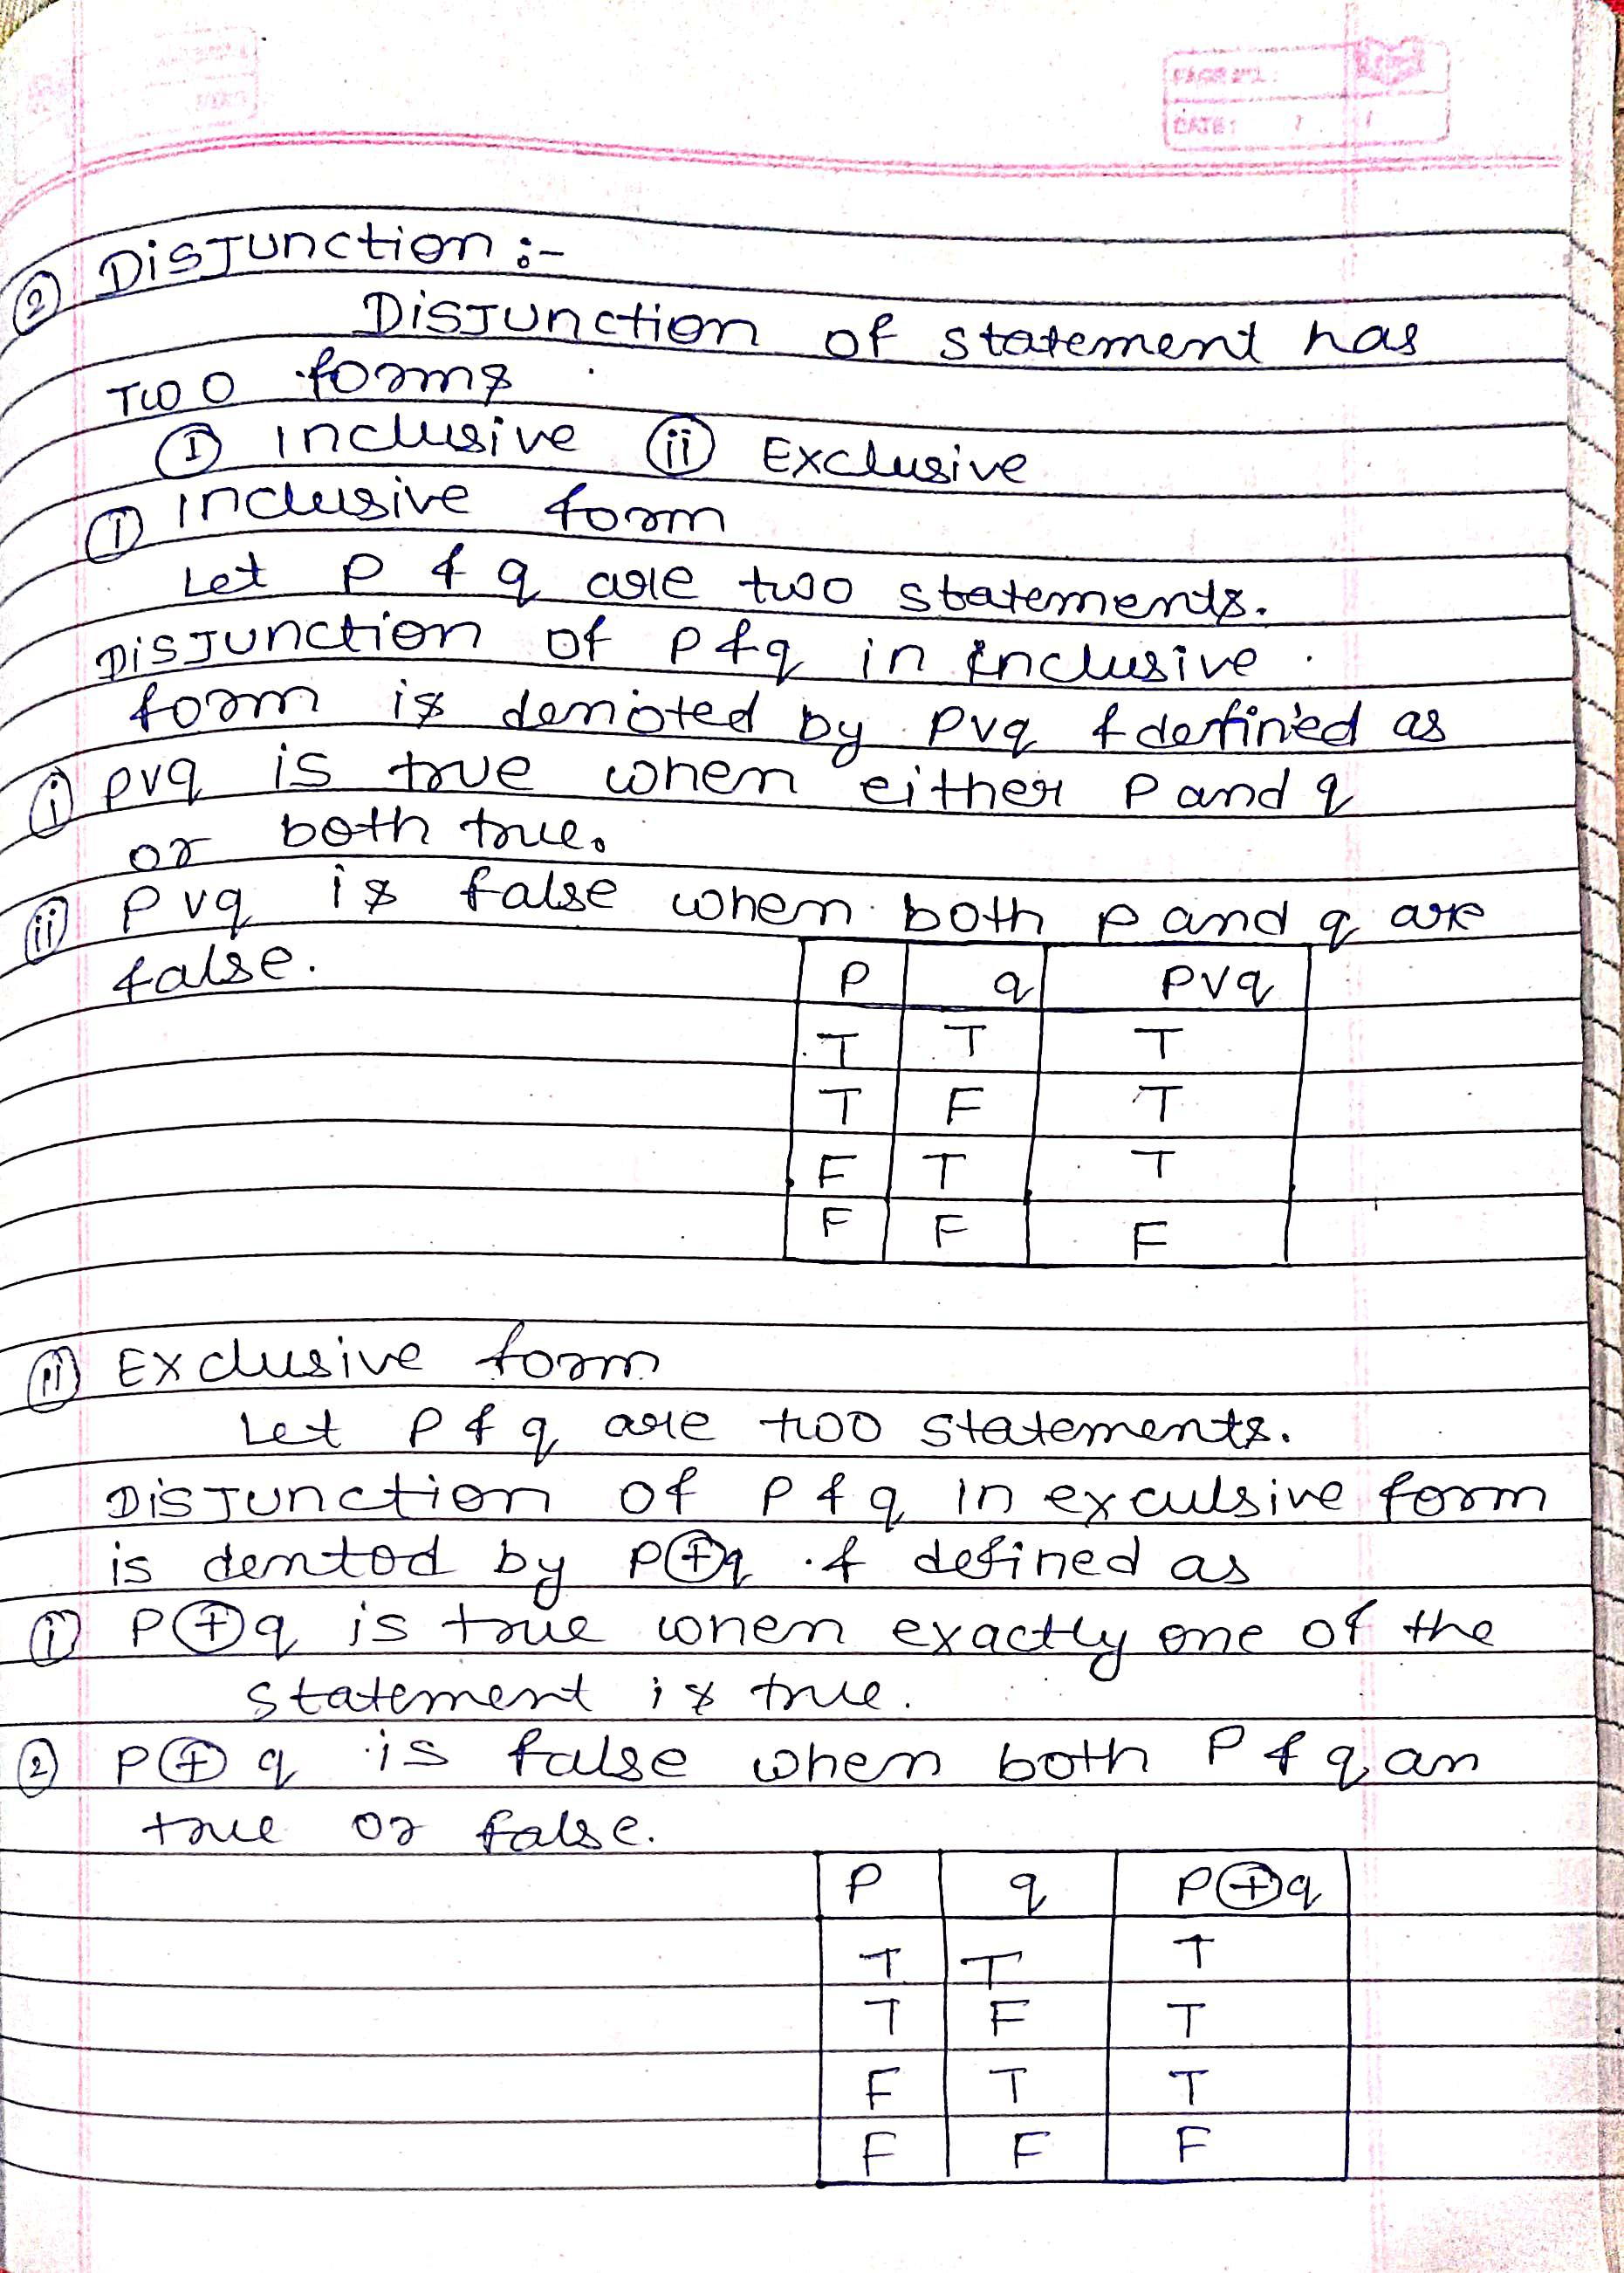 PAGE NO.:
DATE: / /
② Disjunction :-
Disjunction of statement has
Two forms
Ⓘ inclusive ⓘⓘ Exclusive
Ⓘ inclusive form
Let P & q are two statements.
Disjunction of P & q in inclusive
form is denoted by pvq & defined as
ⓘ pvq is true when either P and q
or both true.
ⓘⓘ pvq is false when both p and q are
false.
P q pvq
T T T
T F T
F T T
F F F
ⓘⓘ Exclusive form
Let P & q are two statements.
Disjunction of P & q in exculsive form
is dentod by P⊕q & defined as
① P⊕q is true when exactly one of the
statement is true.
② P⊕q is false when both P & q an
true or false.
P q P⊕q
T T T
T F T
F T T
F F F